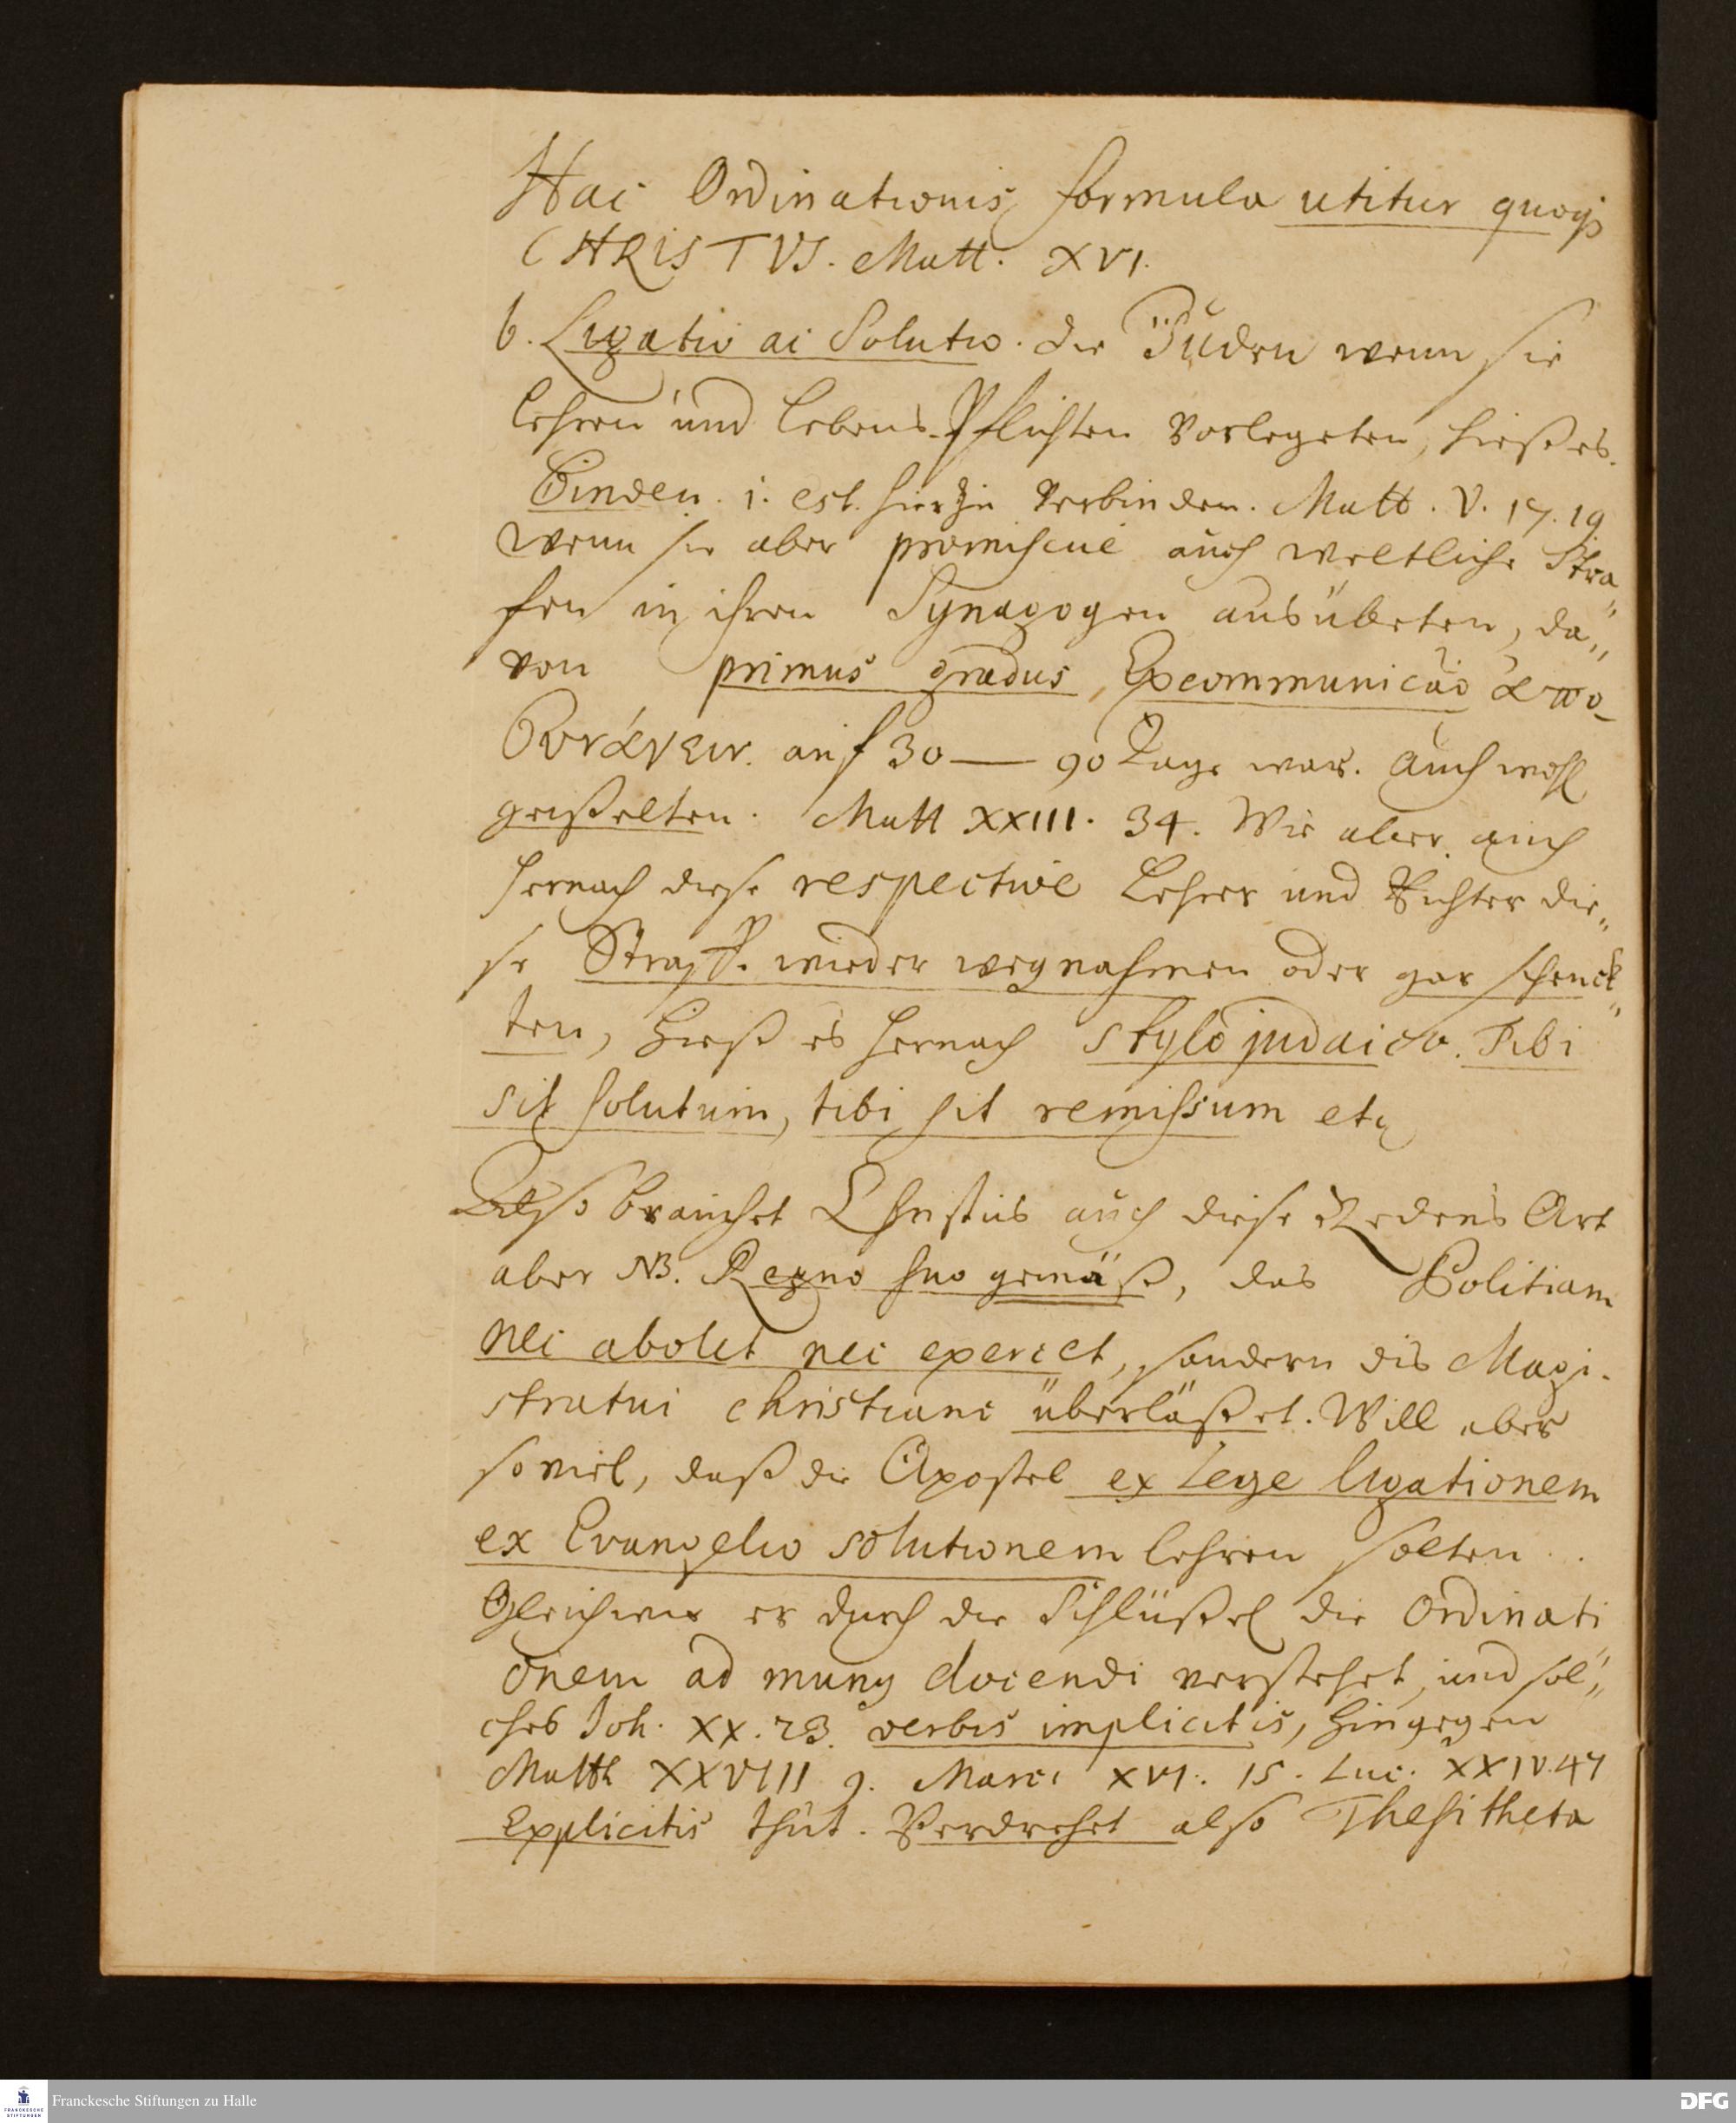 Hac Ordinationis formula utitur quoqȝ
CHRISTVS. Matt. XVI.
b. Ligatio ac Solutio. die Jüden wenn sie
lehren und Lebens-Pflichten vorlegeten, hieß es.
Binden. i. est. hierzu verbinden. Matt. V. 17. 19
wenn sie aber promiscue auch weltliche Stra„
fen in ihren Synagogen ausübeten, da„
von primus gradus, Excommunicaō ἀπο_
συνάγειν. auf 30 — 90 Tage war. auch wohl
geißelten. Matt XXIII. 34. Wie aber auch
hernach diese respective Lehrer und Richter die„
se Straff. wieder wegnahmen oder gar schenck„
ten, hieß es hernach stylo judaico. Tibi
sit solutum, tibi sit remissum etc
Also brauchet Christus auch diese Redens Art
aber NB. Regno suo gemäß, das Politiam
nec abolet nec exercet, sondern dis Magi-
stratui christiano überläßet. Will aber
soviel, daß die Apostel ex Lege ligationem
ex Evangelio solutionem lehren solten.
Gleichwie er durch die Schlüßel die Ordinati
onem ad munꝰ docendi verstehet, und sol„
ches Joh. XX. 23. verbis implicitis, hingegen
Matth XXVIII 9. Marc. XVI. 15. Luc. XXIV. 47
Explicitis thut. Verdrehet also Thesitheta
Franckesche Stiftungen zu Halle
FRANCKESCHE
STIFTUNGEN
DFG